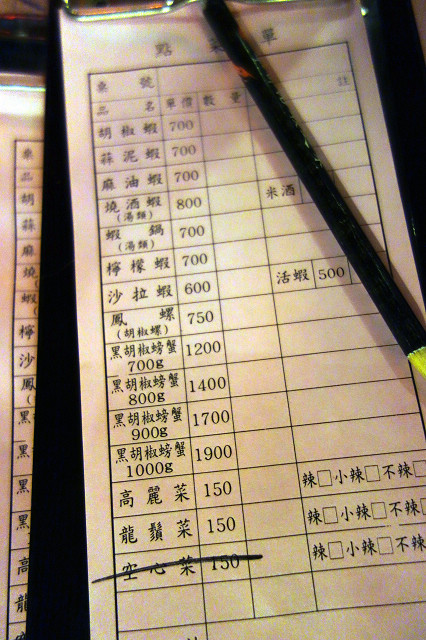 點 菜 單
桌 號
品 名 單價 數量 註
胡椒蝦 700
蒜泥蝦 700
麻油蝦 700
燒酒蝦 (湯類) 800 米酒
蝦 鍋 (湯類) 700
檸檬蝦 700
沙拉蝦 600 活蝦 500
鳳 螺 (胡椒螺) 750
黑胡椒螃蟹 700g 1200
黑胡椒螃蟹 800g 1400
黑胡椒螃蟹 900g 1700
黑胡椒螃蟹 1000g 1900
高麗菜 150 辣□小辣□不辣
龍鬚菜 150 辣□小辣□不辣
空心菜 150 辣□小辣□不辣
桌
品
胡
蒜
麻
燒
蝦
檸
沙
鳳
黑
黑
黑
黑
高
龍